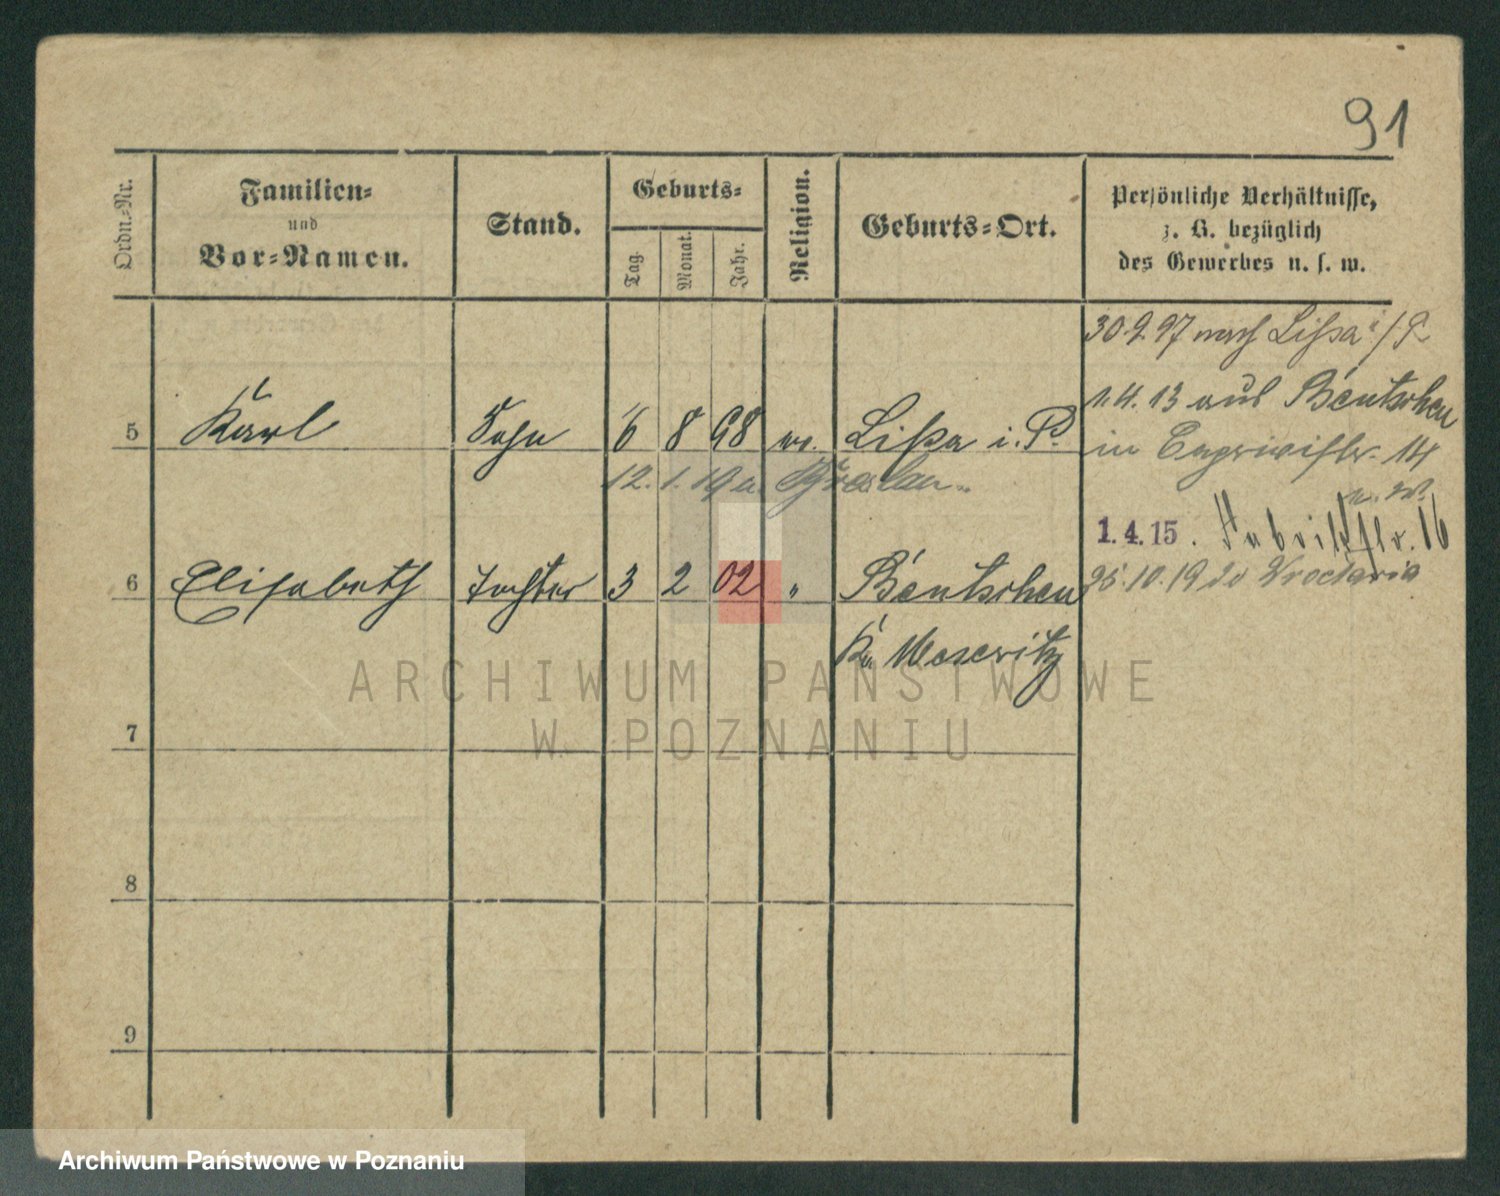 91
Ordn.-Nr.
Familien-
und
Vor-Namen.
Stand.
Geburts-
Tag.
Monat.
Jahr.
Religion.
Geburts-Ort.
Persönliche Verhältnisse,
z. B. bezüglich
des Gewerbes u. s. w.
30.9.97 nach Lissa i/P
1.4.13 aus Bentschen
5 Karl Sohn 6 8 98 ev. Lissa i. P.
in 14
12. 1. 19 n. Breslau
1.4.15. Fabrikstr. 16
6 Elisabeth Tochter 3 2 02 " Bentschen
25.10.19 do Wrocławia
Kr. Meseritz
ARCHIWUM PAŃSTWOWE
W POZNANIU
7
8
9
Archiwum Państwowe w Poznaniu